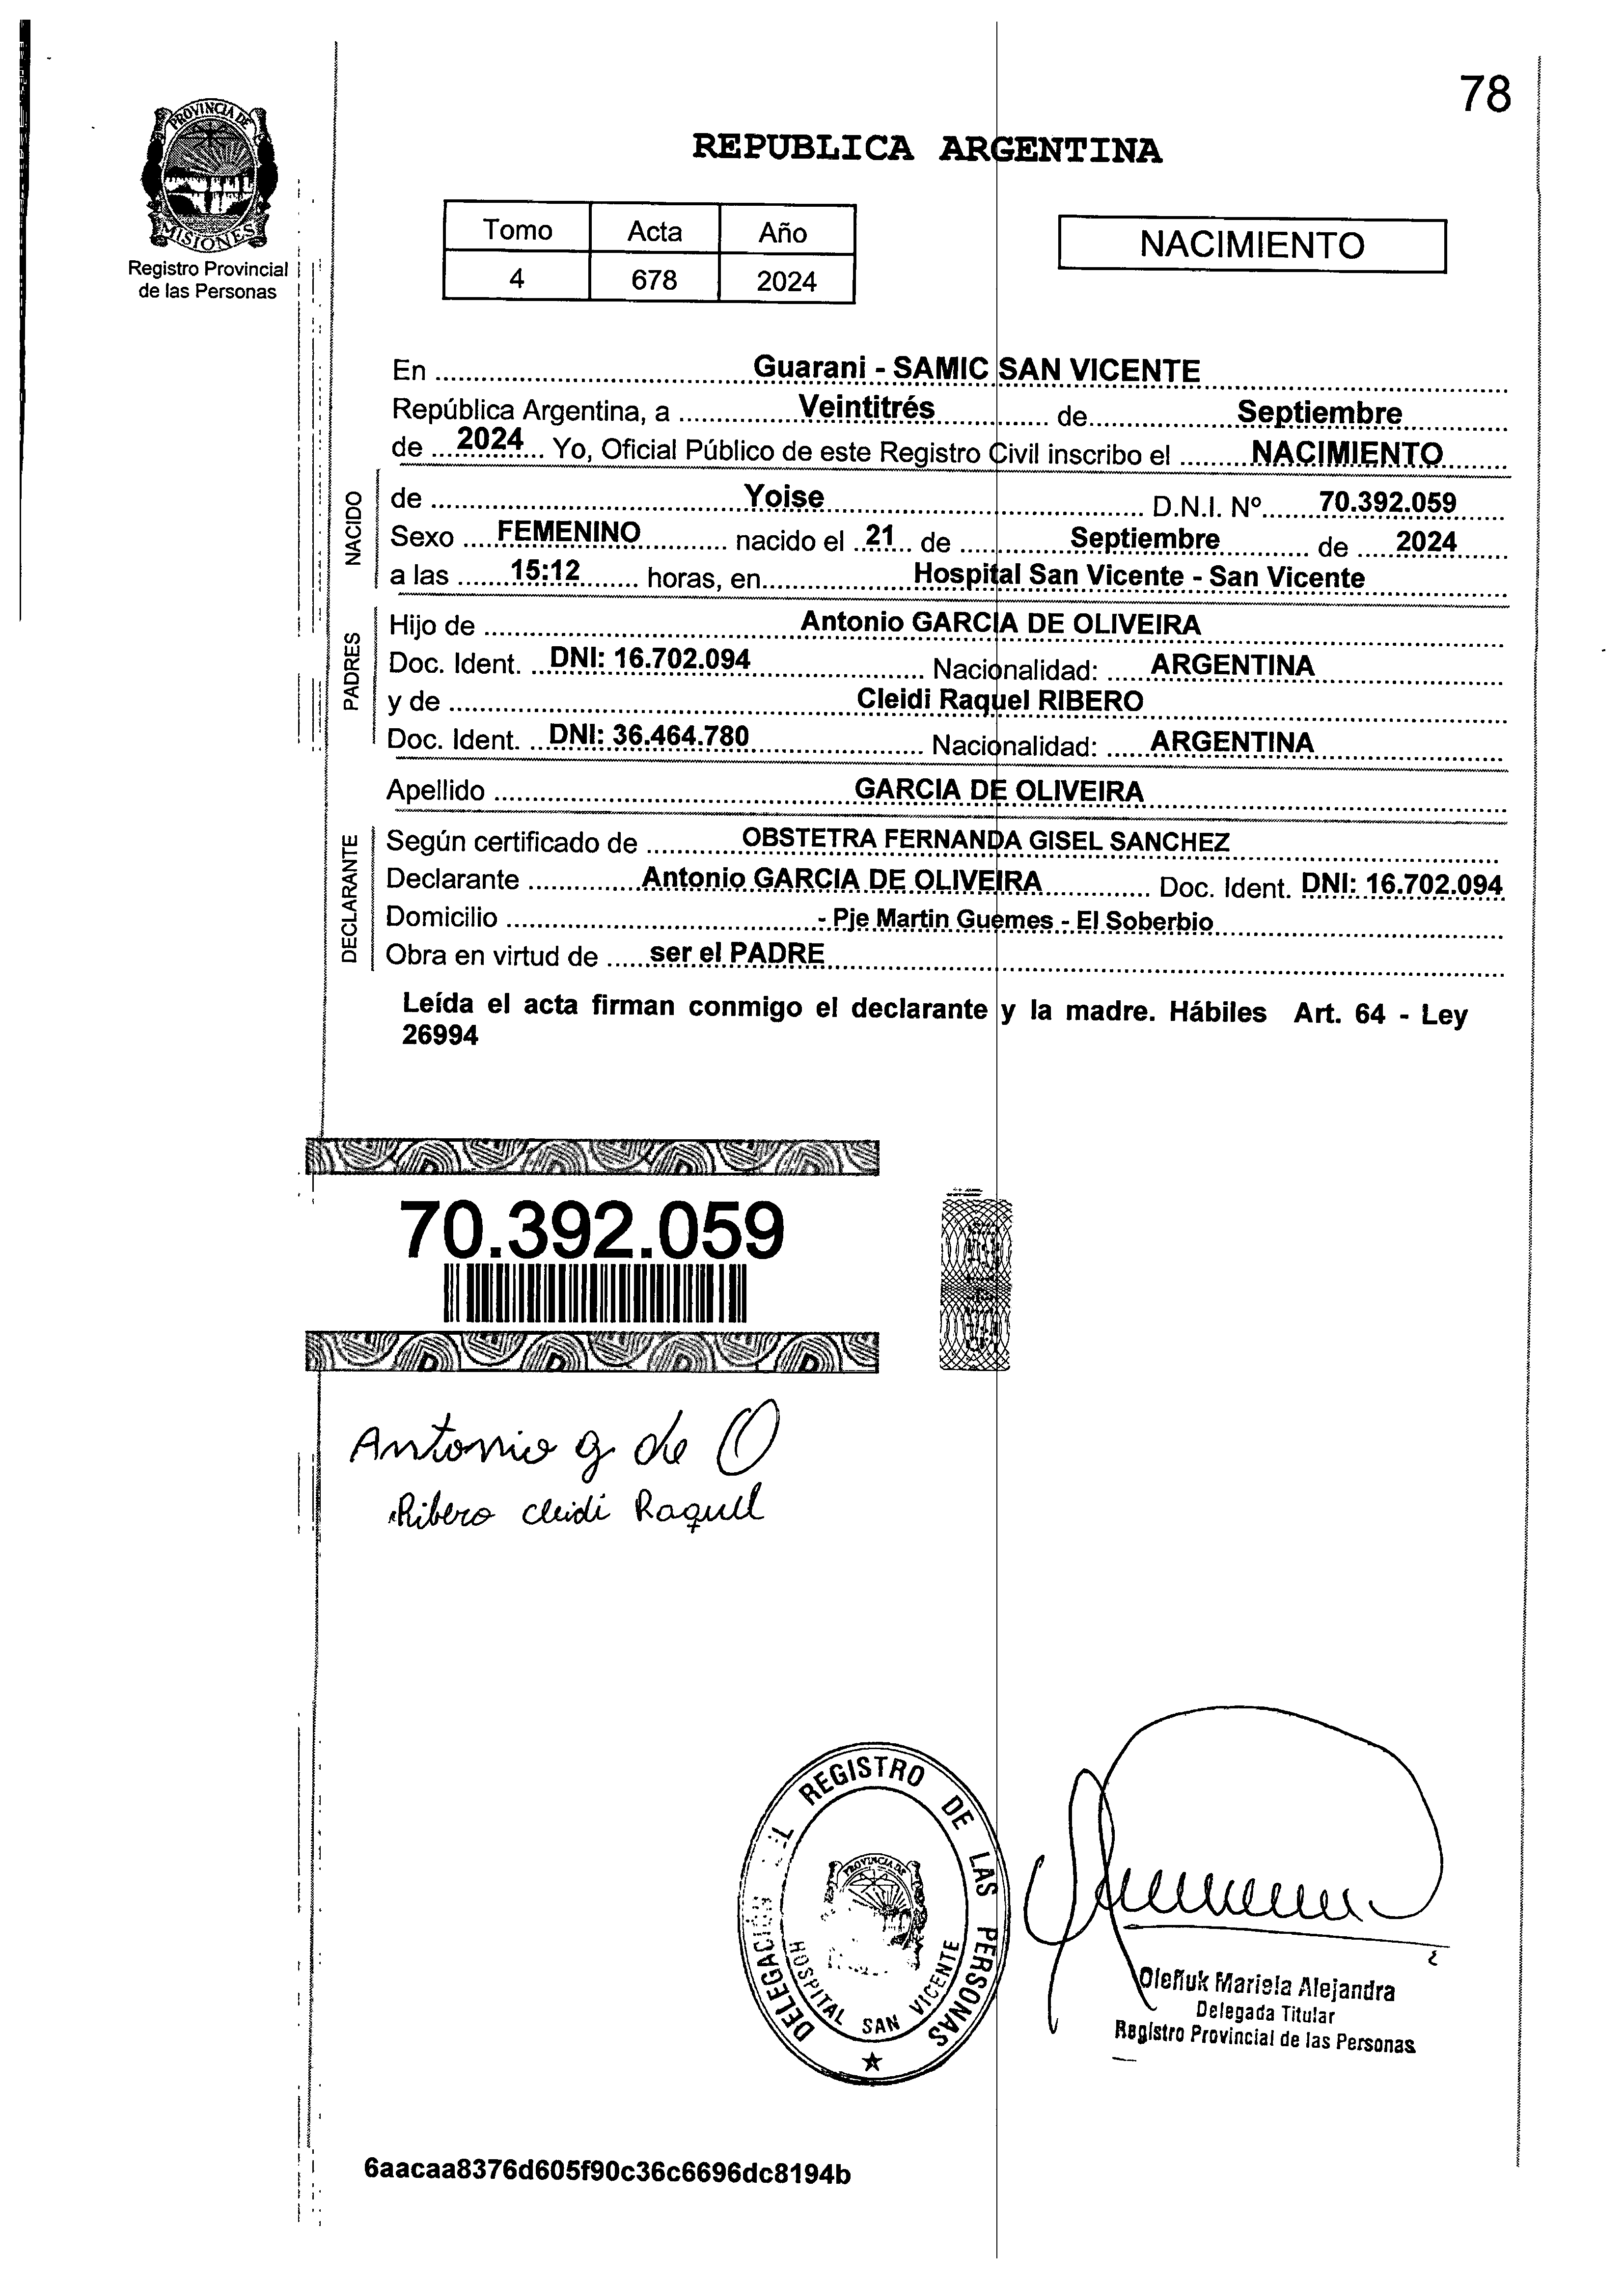 78
PROVINCIA DE
MISIONES
Registro Provincial
de las Personas
REPUBLICA ARGENTINA
Tomo Acta Año
4 678 2024
NACIMIENTO
En Guarani - SAMIC SAN VICENTE
República Argentina, a Veintitrés de Septiembre
de 2024 Yo, Oficial Público de este Registro Civil inscribo el NACIMIENTO
NACIDO
de Yoise D.N.I. Nº 70.392.059
Sexo FEMENINO nacido el 21 de Septiembre de 2024
a las 15:12 horas, en Hospital San Vicente - San Vicente
PADRES
Hijo de Antonio GARCIA DE OLIVEIRA
Doc. Ident. DNI: 16.702.094 Nacionalidad: ARGENTINA
y de Cleidi Raquel RIBERO
Doc. Ident. DNI: 36.464.780 Nacionalidad: ARGENTINA
Apellido GARCIA DE OLIVEIRA
DECLARANTE
Según certificado de OBSTETRA FERNANDA GISEL SANCHEZ
Declarante Antonio GARCIA DE OLIVEIRA Doc. Ident. DNI: 16.702.094
Domicilio - Pje Martin Guemes - El Soberbio
Obra en virtud de ser el PADRE
Leída el acta firman conmigo el declarante y la madre. Hábiles Art. 64 - Ley
26994
70.392.059
Antonio g de O
Ribero cleidi Raquel
DELEGACIÓN REGISTRO DE LAS PERSONAS
PROVINCIA DE
HOSPITAL SAN VICENTE
Oleñuk Mariela Alejandra
Delegada Titular
Registro Provincial de las Personas
6aacaa8376d605f90c36c6696dc8194b